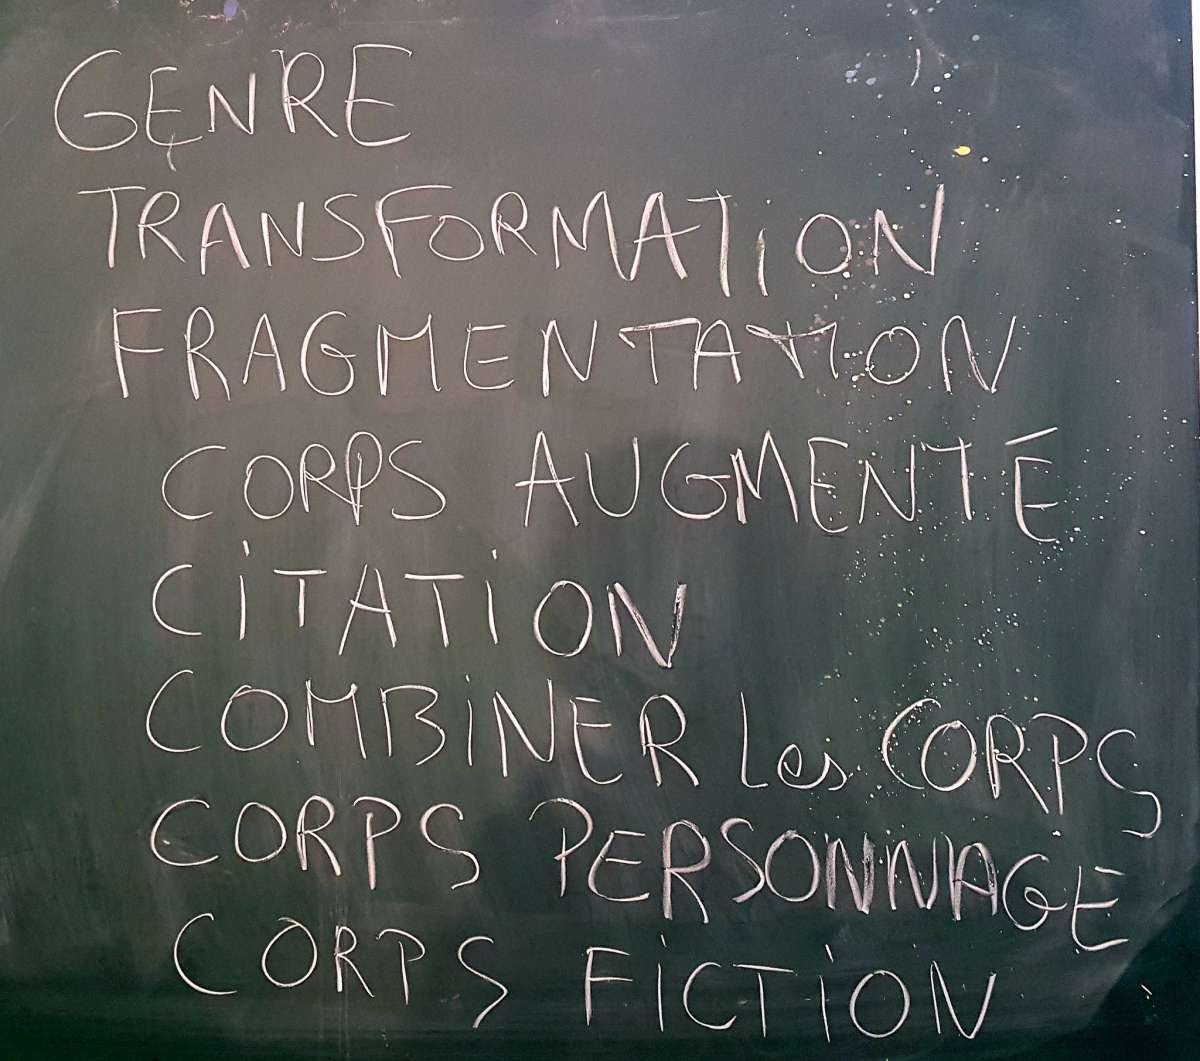 GENRE
TRANSFORMATION
FRAGMENTATION
CORPS AUGMENTÉ
CiTATiON
COMBiNER Les CORPS
CORPS PERSONNAGE
CORPS FiCTiON